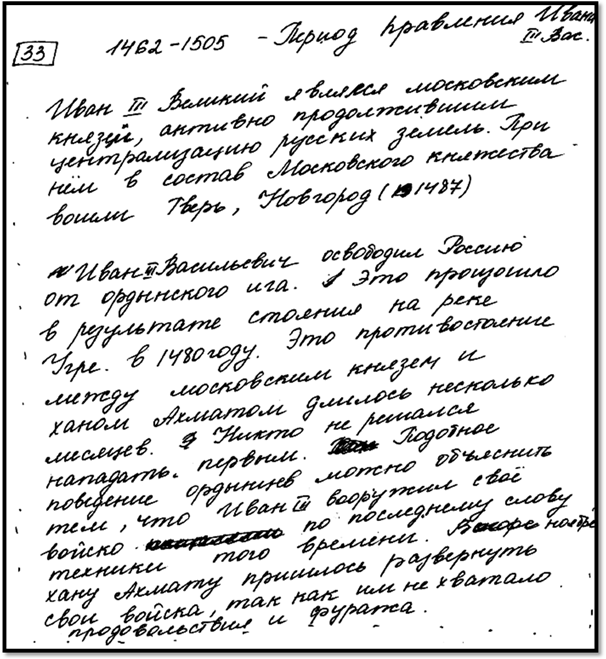 33
1462-1505 - Период правления Ивана
III Вас.
Иван III Великий являлся московским
князей, активно продолжившим
централизацию русских земель. При
нём в состав Московского княжества
вошли Тверь, Новгород (1487)
Иван III Васильевич освободил Россию
от ордынского ига. Это произошло
в результате стояния на реке
Угре. в 1480 году. Это противостояние
между московским князем и
ханом Ахматом длилось несколько
месяцев. Никто не решался
нападать первым. Подобное
поведение ордынцев можно объяснить
тем, что Иван III вооружил своё
войско по последнему слову
техники того времени.
хану Ахмату пришлось развернуть
свои войска, так как им не хватало
продовольствия и фуража.